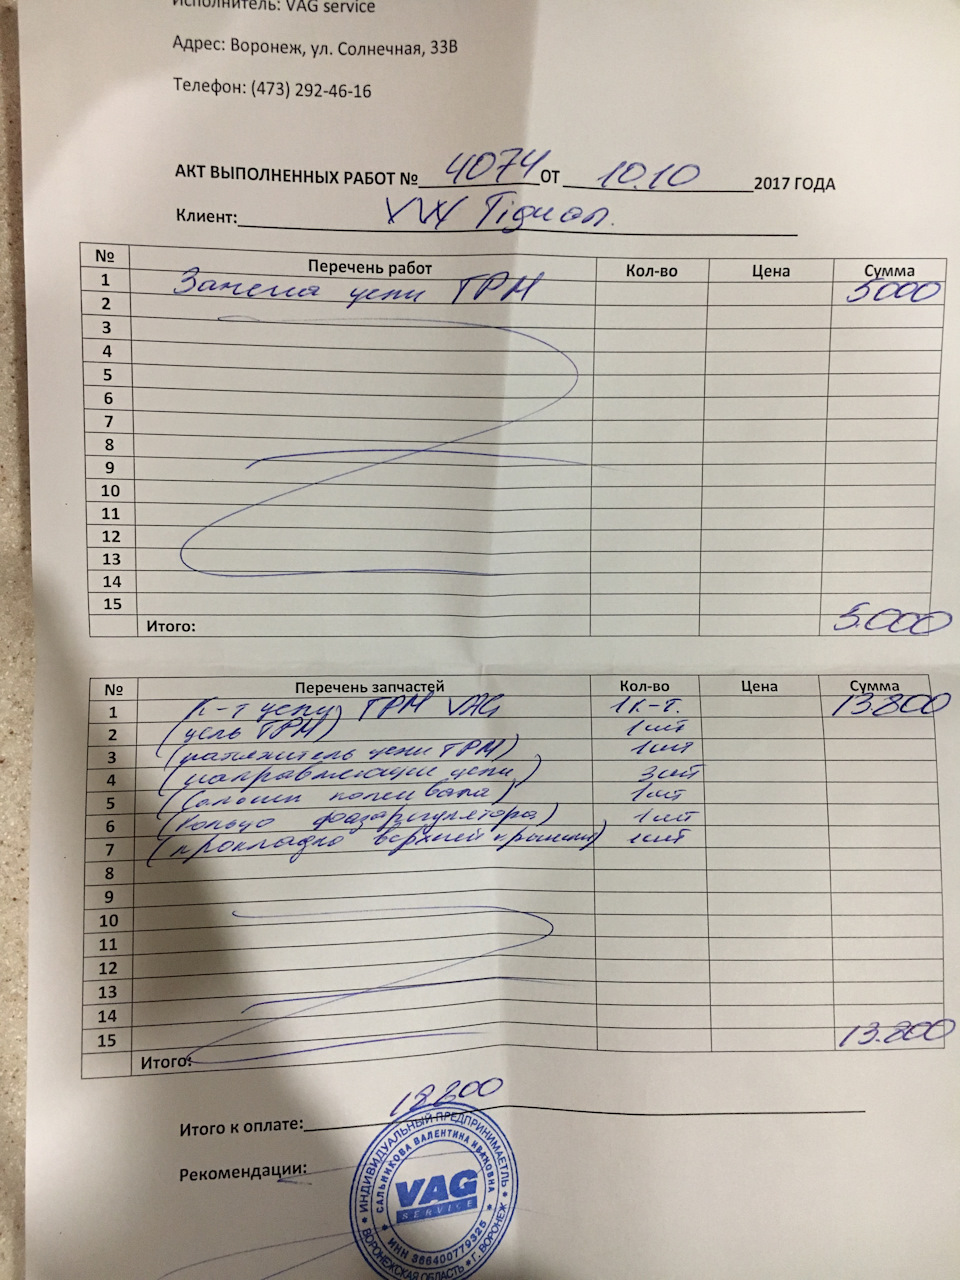 Исполнитель: VAG service
Адрес: Воронеж, ул. Солнечная, 33В
Телефон: (473) 292-46-16
АКТ ВЫПОЛНЕННЫХ РАБОТ № 4074 ОТ 10.10 2017 ГОДА
Клиент: VW Tiguan.
№ Перечень работ Кол-во Цена Сумма
1 Замена цепи ГРМ 5000
2
3
4
5
6
7
8
9
10
11
12
13
14
15
Итого: 5.000
№ Перечень запчастей Кол-во Цена Сумма
1 К-т цепи ГРМ VAG 1к-т. 13.800
2 (цепь ГРМ) 1шт
3 (натяжитель цепи ГРМ) 1шт
4 (направляющие цепи) 3шт
5 (Сальник коленвала) 1шт
6 (Кольцо фазарегулятора) 1шт
7 (прокладка верхней крышки) 1шт
8
9
10
11
12
13
14
15 13.800
Итого:
Итого к оплате: 18800
Рекомендации:
ИНДИВИДУАЛЬНЫЙ ПРЕДПРИНИМАЕТЛЬ
САЛЬНИКОВА ВАЛЕНТИНА ИВАНОВНА
VAG
SERVICE
ИНН 366400779325
ВОРОНЕЖСКАЯ ОБЛАСТЬ Г. ВОРОНЕЖ